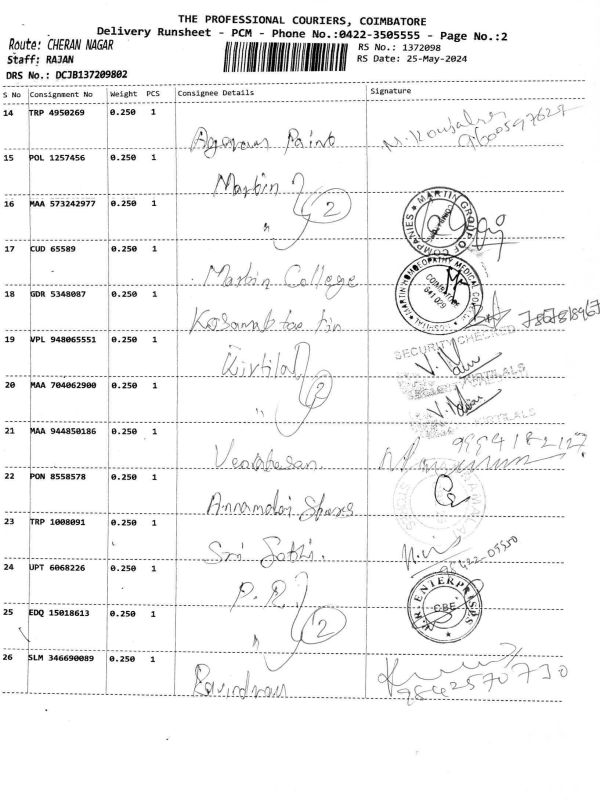 THE PROFESSIONAL COURIERS, COIMBATORE
Delivery Runsheet - PCM - Phone No.:0422-3505555 - Page No.:2
Route: CHERAN NAGAR
RS No.: 1372098
Staff: RAJAN
RS Date: 25-May-2024
DRS No.: DCJB137209802
S No Consignment No Weight PCS Consignee Details Signature
14 TRP 4950269 0.250 1
Paint
15 POL 1257456 0.250 1
Martin
16 MAA 573242977 0.250 1 " 2
MARTIN GROUP OF COMPANIES
17 CUD 65589 0.250 1
Martin College
MARTIN HOMOEOPATHY MEDICAL COLLEGE HOSPITAL COIMBATORE 641 029
18 GDR 5348087 0.250 1
19 VPL 948065551 0.250 1
SECURITY CHECKED
Kirtilal
20 MAA 704062900 0.250 1 " 2
KIRTILALS
21 MAA 944850186 0.250 1
Venkatesan
22 PON 8558578 0.250 1
Annamalai Stores
23 TRP 1008091 0.250 1
Sri Sakthi.
24 UPT 6068226 0.250 1
P.R.
ENTERPRISES CBE
25 EDQ 15018613 0.250 1 " 2
26 SLM 346690089 0.250 1
Ravindran
9842570730